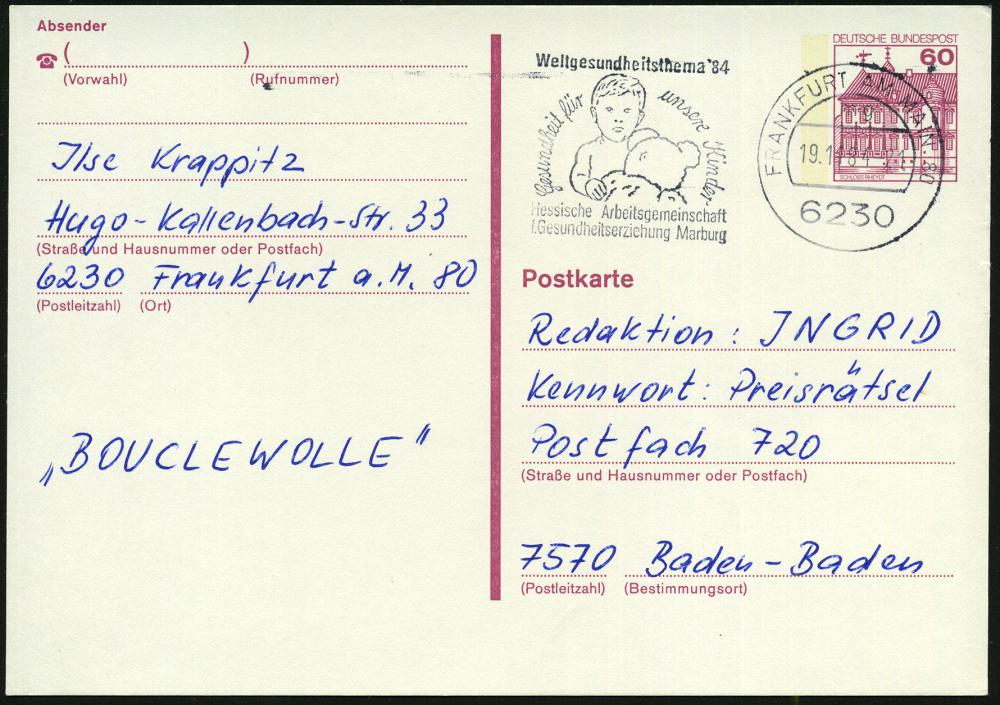 Absender
☎ ( )
(Vorwahl) (Rufnummer)
Ilse Krappitz
Hugo-Kallenbach-Str. 33
(Straße und Hausnummer oder Postfach)
6230 Frankfurt a. M. 80
(Postleitzahl) (Ort)
„BOUCLEWOLLE"
Weltgesundheitsthema '84
Gesundheit für unsere Kinder
Hessische Arbeitsgemeinschaft
f.Gesundheitserziehung Marburg
DEUTSCHE BUNDESPOST
60
SCHLOSS RHEYDT
FRANKFURT AM MAIN 80
6230
Postkarte
Redaktion: INGRID
Kennwort: Preisrätsel
Postfach 720
(Straße und Hausnummer oder Postfach)
7570 Baden-Baden
(Postleitzahl) (Bestimmungsort)